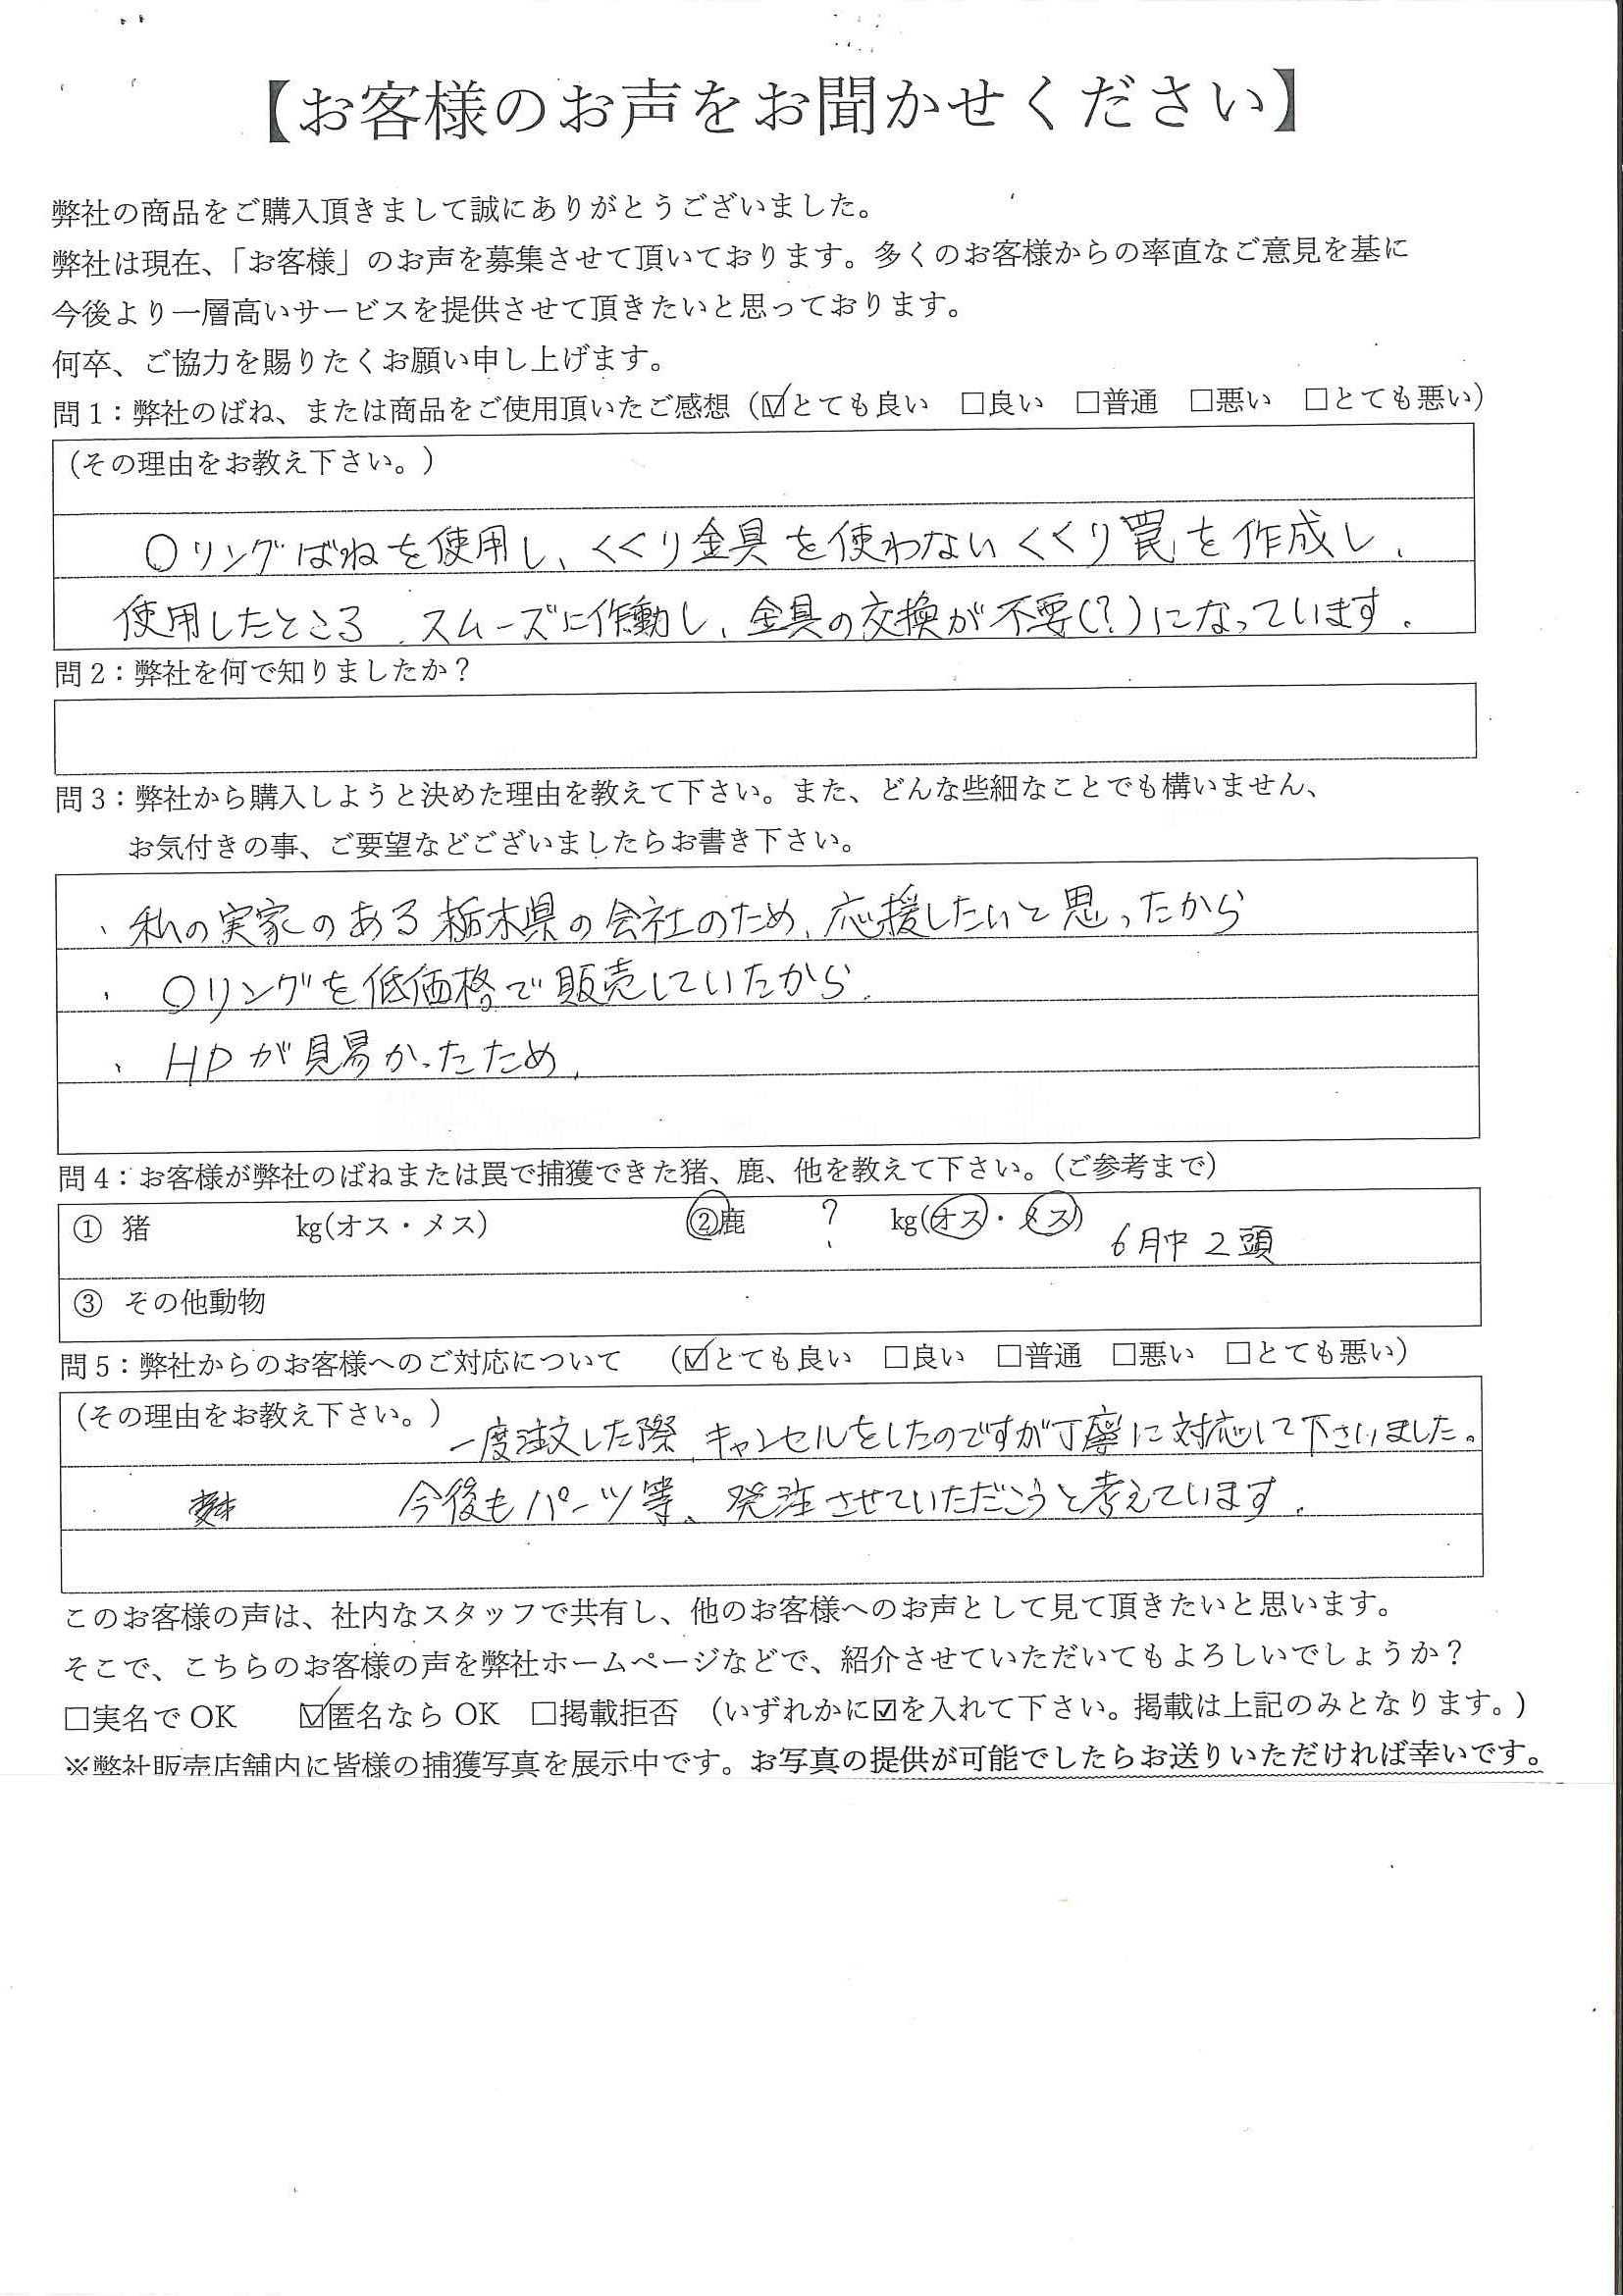 【お客様のお声をお聞かせください】
弊社の商品をご購入頂きまして誠にありがとうございました。
弊社は現在、「お客様」のお声を募集させて頂いております。多くのお客様からの率直なご意見を基に
今後より一層高いサービスを提供させて頂きたいと思っております。
何卒、ご協力を賜りたくお願い申し上げます。
問1：弊社のばね、または商品をご使用頂いたご感想（☑とても良い　□良い　□普通　□悪い　□とても悪い）
（その理由をお教え下さい。）
○リングばねを使用し、くくり金具を使わないくくり罠を作成し、
使用したところ、スムーズに作動し、金具の交換が不要(?)になっています.
問2：弊社を何で知りましたか？
問3：弊社から購入しようと決めた理由を教えて下さい。また、どんな些細なことでも構いません、
お気付きの事、ご要望などございましたらお書き下さい。
、私の実家のある栃木県の会社のため、応援したいと思ったから
、○リングを低価格で販売していたから.
、HPが見易かったため.
問4：お客様が弊社のばねまたは罠で捕獲できた猪、鹿、他を教えて下さい。（ご参考まで）
① 猪　kg(オス・メス)　②鹿　?　kg(オス・メス)　6月中 2頭
③ その他動物
問5：弊社からのお客様へのご対応について　（☑とても良い　□良い　□普通　□悪い　□とても悪い）
（その理由をお教え下さい。）一度注文した際、キャンセルをしたのですが丁寧に対応して下さいました。
今後もパーツ等、発注させていただこうと考えています.
このお客様の声は、社内なスタッフで共有し、他のお客様へのお声として見て頂きたいと思います。
そこで、こちらのお客様の声を弊社ホームページなどで、紹介させていただいてもよろしいでしょうか？
□実名でOK　☑匿名ならOK　□掲載拒否　（いずれかに☑を入れて下さい。掲載は上記のみとなります。）
※弊社販売店舗内に皆様の捕獲写真を展示中です。お写真の提供が可能でしたらお送りいただければ幸いです。